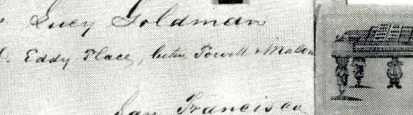 Lucy Goldman
Eddy Place, betw. Powell & Mason
San Francisco